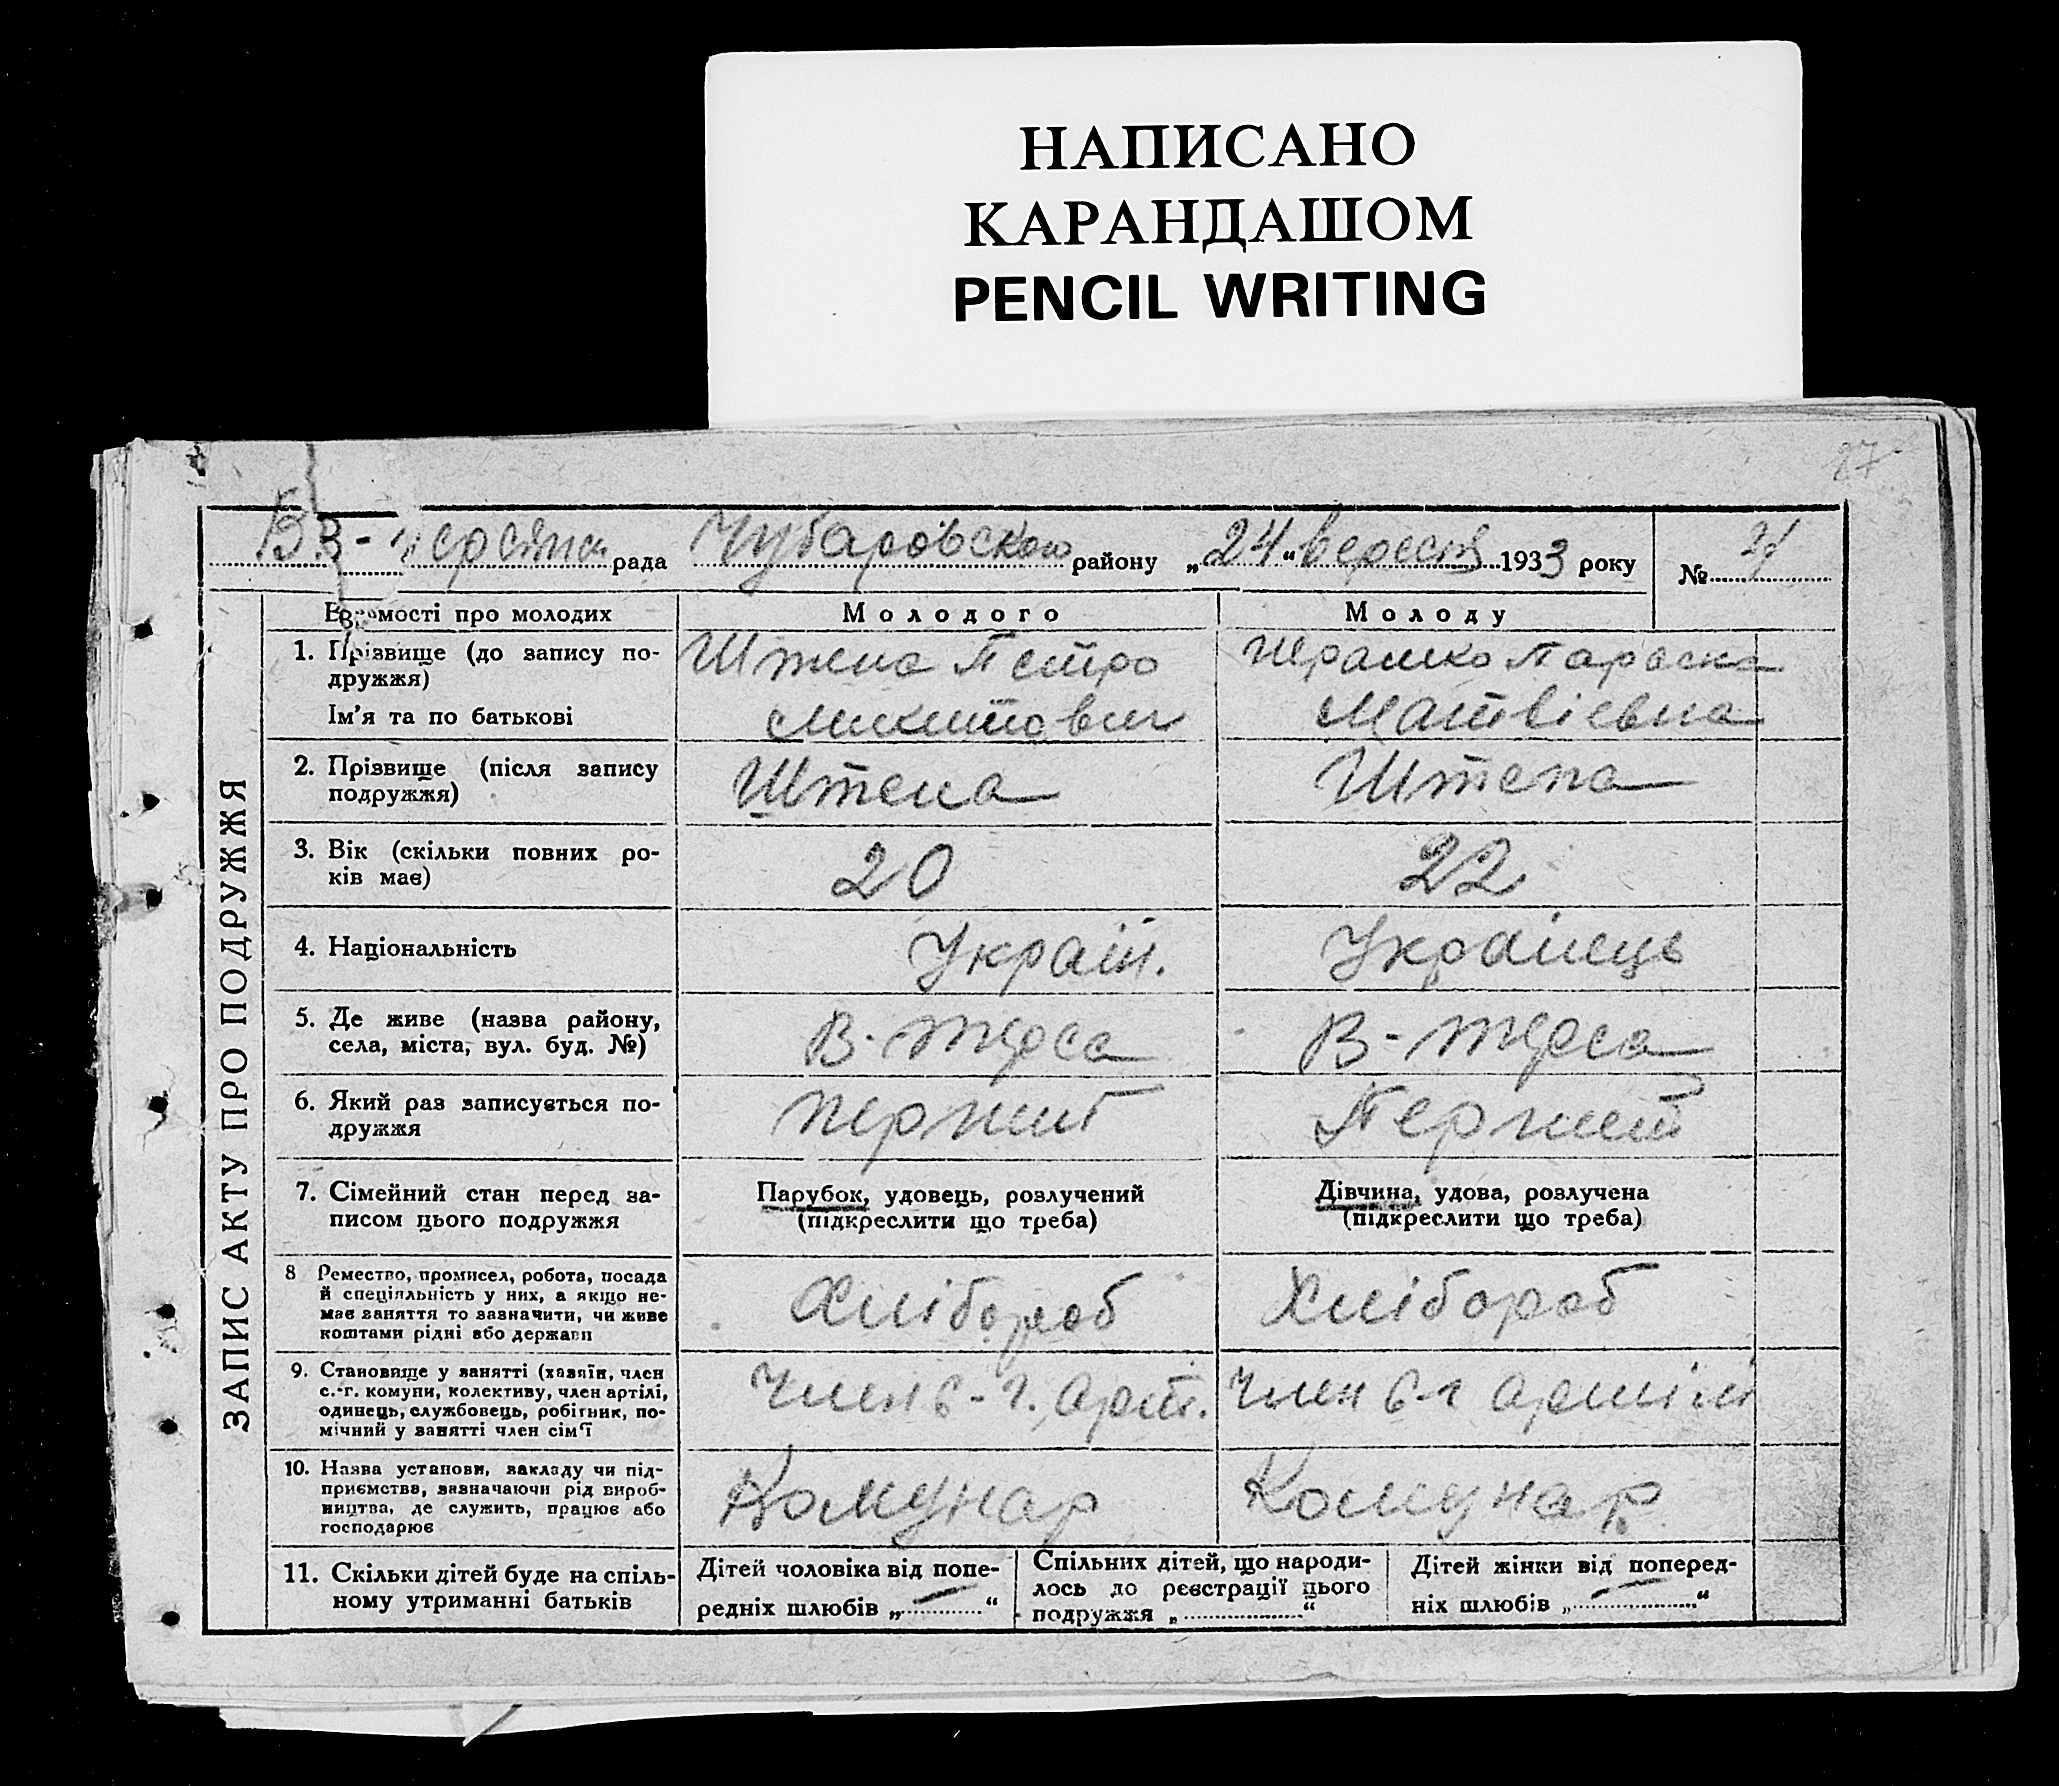 НАПИСАНО
КАРАНДАШОМ
PENCIL WRITING
27
рада Чубаровского району „24“ вересня 1933 року №
ЗАПИС АКТУ ПРО ПОДРУЖЖЯ
Відомості про молодих Молодого Молоду
1. Прізвище (до запису по-
дружжя)
Ім'я та по батькові
Штепа Петро
Микитович
Параска
Матвіевна
2. Прізвище (після запису
подружжя)
Штепа Штепа
3. Вік (скільки повних ро-
ків має)
20 22
4. Національність Україн. Українець
5. Де живе (назва району,
села, міста, вул. буд. №)
В-Терса В-Терса
6. Який раз записується по-
дружжя
Перший
7. Сімейний стан перед за-
писом цього подружжя
Парубок, удовець, розлучений
(підкреслити що треба)
Дівчина, удова, розлучена
(підкреслити що треба)
8 Ремество, промисел, робота, посада
й спеціяльність у них, а якщо не-
має заняття то зазначити, чи живе
коштами рідні або держави
Хлібороб Хлібороб
9. Становище у занятті (хазяїн, член
с.-г. комуни, колективу, член артілі,
одинець, службовець, робітник, по-
мічний у занятті член сім'ї
Член С-г. арт. Член С-г артілі
10. Назва установи, закладу чи під-
приємства, зазначаючи рід вироб-
ництва, де служить, працює або
господарює
Комунар Комунар
11. Скільки дітей буде на спіль-
ному утриманні батьків
Дітей чоловіка від попе-
редніх шлюбів „—“
Спільних дітей, що народи-
лось до реєстрації цього
подружжя „“
Дітей жінки від поперед-
ніх шлюбів „—“